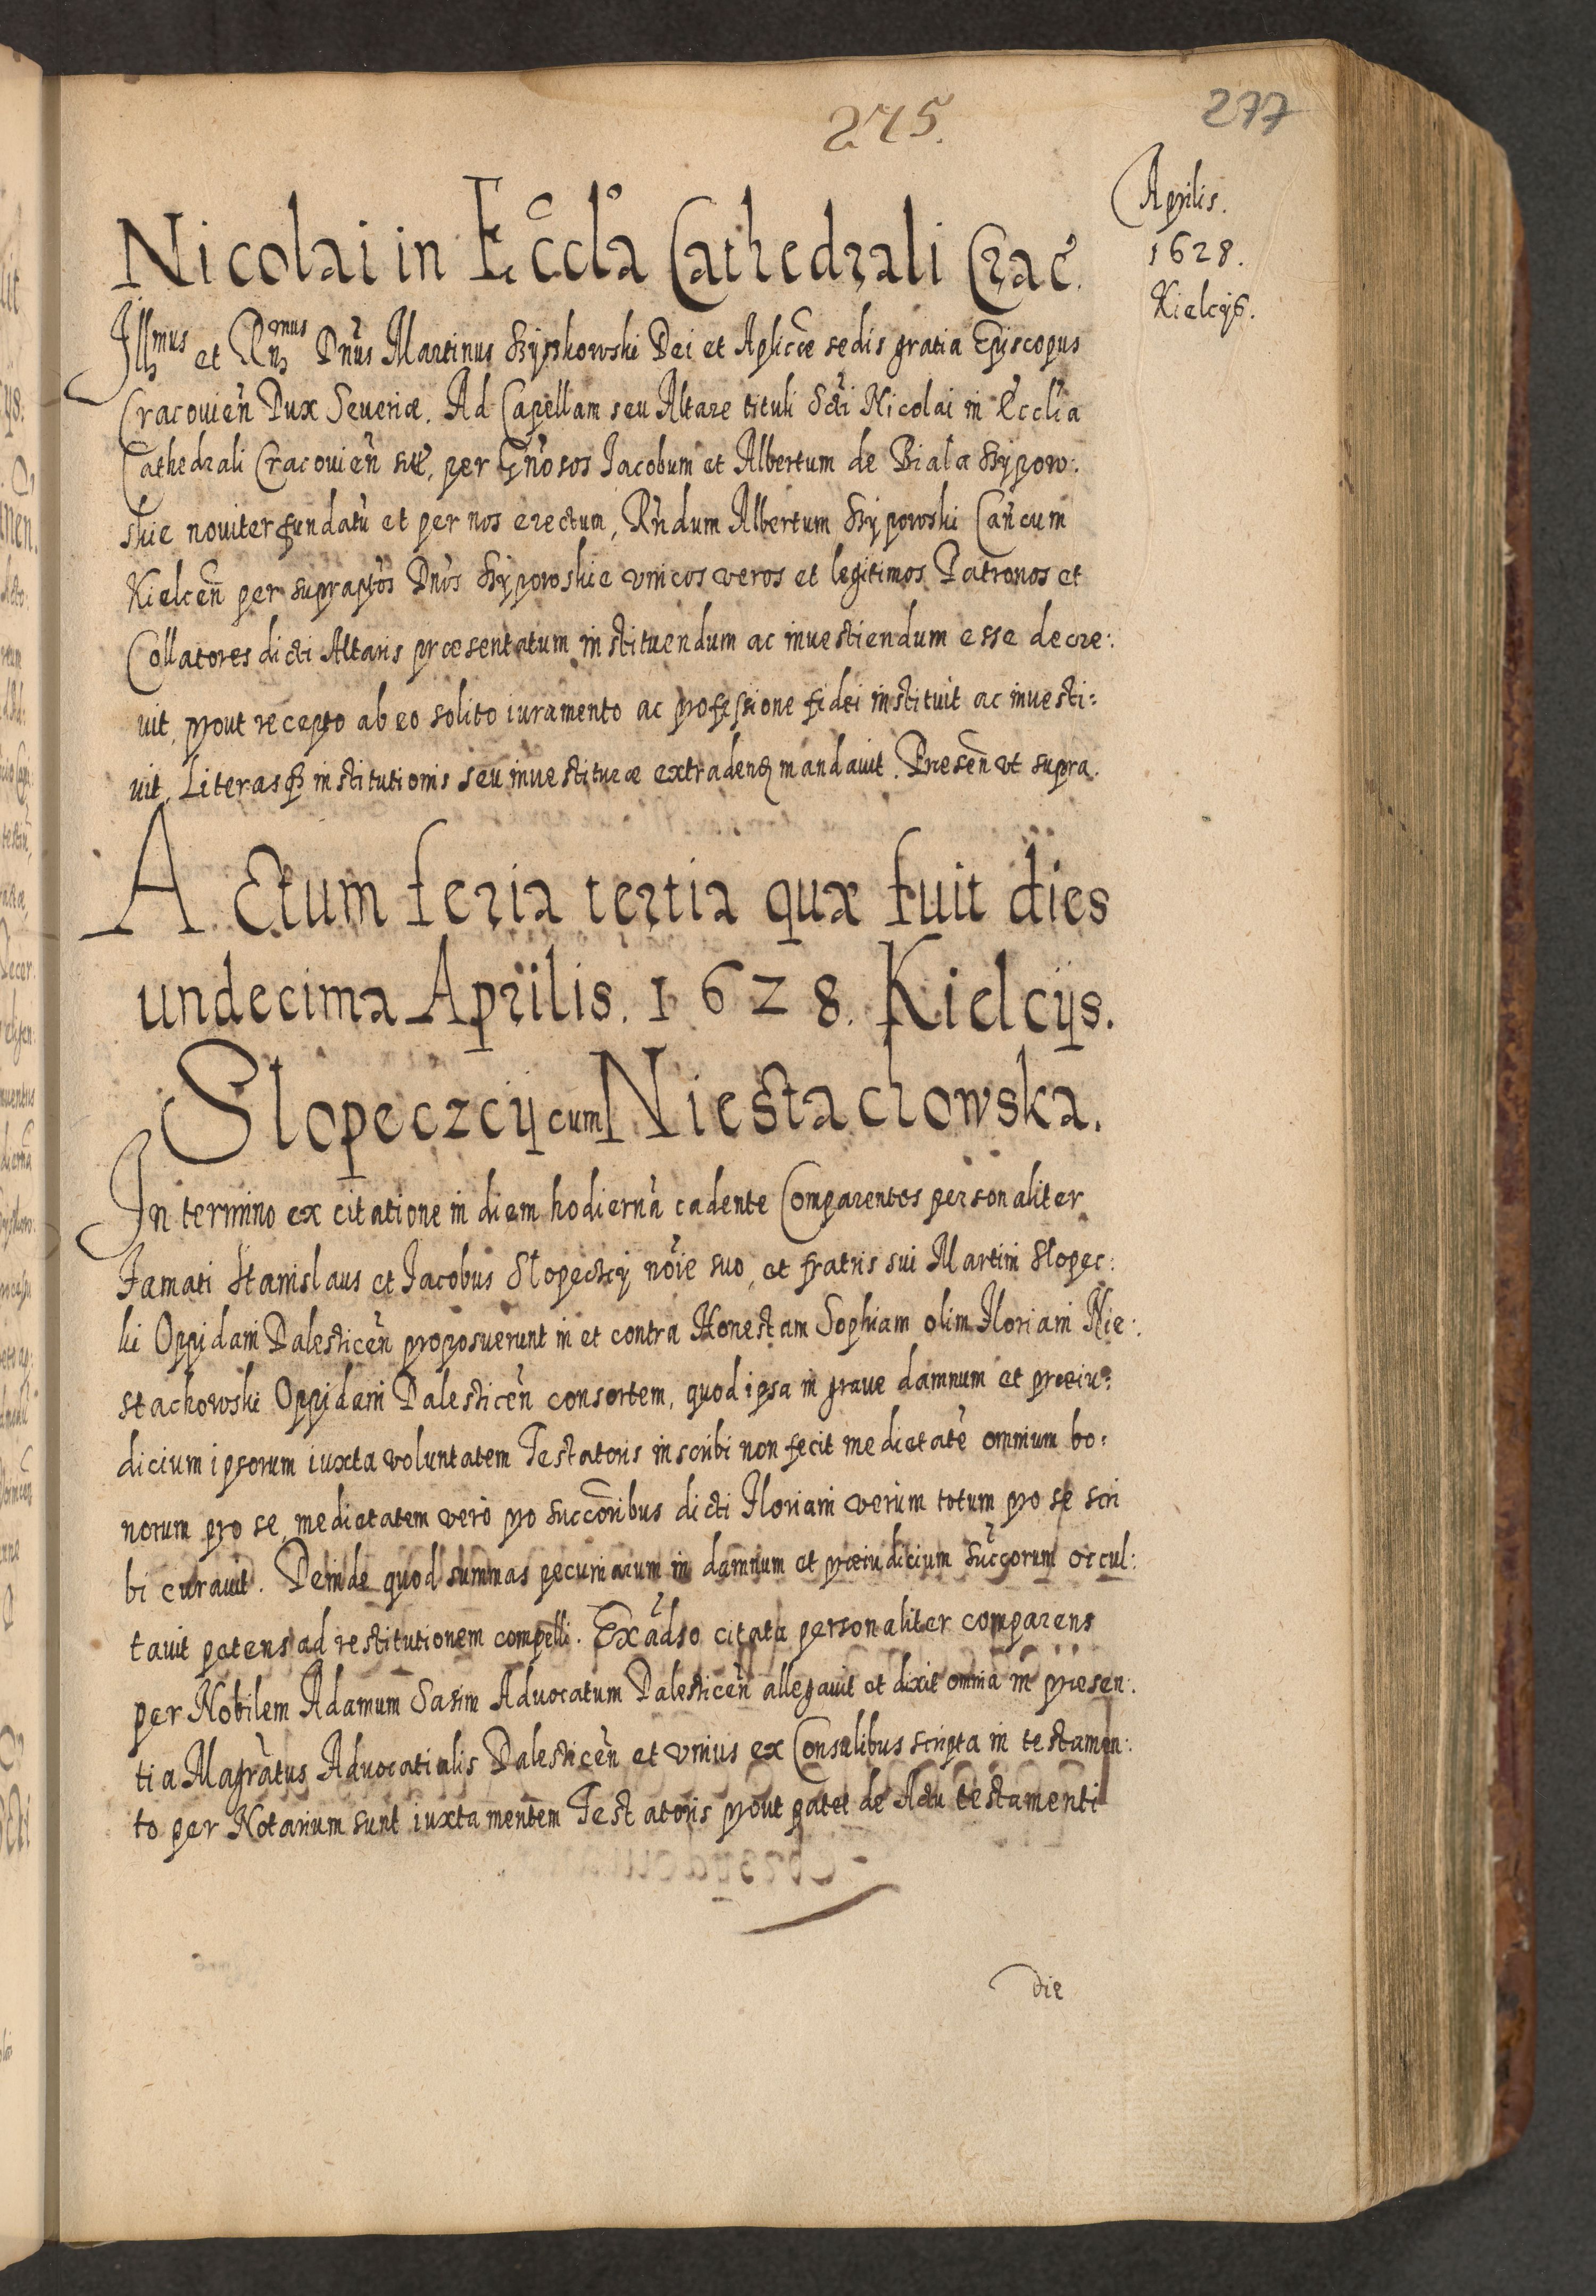 275.
277
Aprilis.
1628.
Kielcijs.
Nicolai in Eccla Cathedrali Crac.
Illmus et Rnmus Dnus Martinus Szyszkowski Dei et Aplicæ sedis gratia Episcopus
Cracovien Dux Severiæ. Ad Capellam seu Altare tituli Scti Nicolai in Ecclia
Cathedrali Cracovien sitæ, per Gnosos Jacobum et Albertum de Biala Szypow:
skie noviter fundatu et per nos erectum, Rndum Albertum Szypowski Cancum
Kielcen per supraptos Dnos Szypowskie vnicos veros et legitimos Patronos et
Collatores dicti Altaris præsentatum instituendum ac investiendum esse decre:
uit, prout recepto ab eo solito iuramento ac professione fidei instituit ac investi:
uit, Literasq3 institutionis seu investituræ extraden mandauit. Presen vt supra.
Actum feria tertia quæ fuit dies
undecima Aprilis. 1628. Kielcijs.
Slopeczcij cum Niestachowska.
In termino ex citatione in diem hodierna cadente Comparentes personaliter
Famati Stanislaus et Jacobus Slopeczcij noie suo, et fratris sui Martini Slopec:
ki Oppidani Dalesticen proposuerunt in et contra Honestam Sophiam olim Floriani Nie:
stachowski Oppidani Dalesticen consortem, quod ipsa in graue damnum et præiu:
dicium ipsorum iuxta voluntatem Testatoris inscribi non fecit medietate omnium bo:
norum pro se, medietatem vero pro succoribus dicti Floriani verum totum pro se scri
bi curauit. Deinde quod summas pecuniarum in damnum et præiudicium succorum occul:
tauit petens ad restitutionem compelli. Ex adso citata personaliter comparens
per Nobilem Adamum Sasin Advocatum Dalesticen allegauit et dixit omnia in præsen:
tia Magratus Advocatialis Dalesticen et vnius ex Consulibus scripta in testamen:
to per Notarium sunt iuxta mentem Testatoris prout patet de Actu testamenti
die